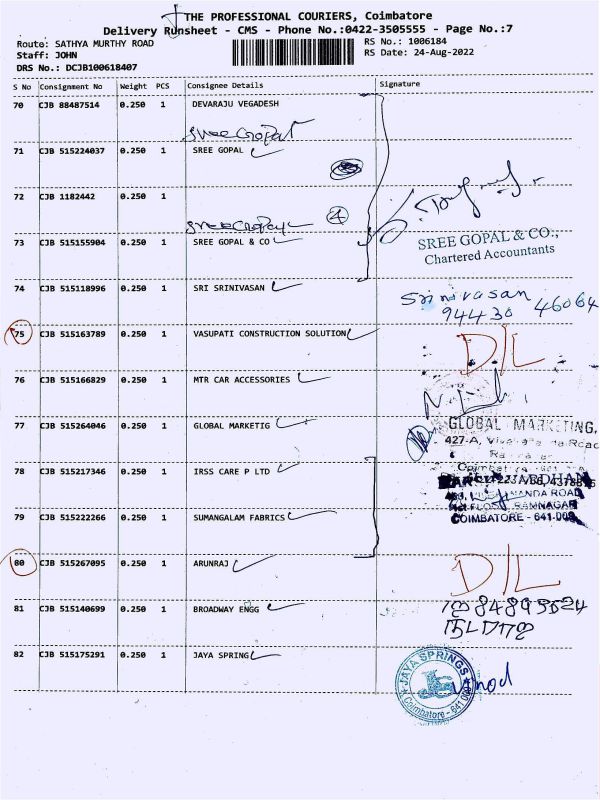 THE PROFESSIONAL COURIERS, Coimbatore
Delivery Runsheet - CMS - Phone No.:0422-3505555 - Page No.:7
Route: SATHYA MURTHY ROAD
RS No.: 1006184
Staff: JOHN
RS Date: 24-Aug-2022
DRS No.: DCJB100618407
S No Consignment No Weight PCS Consignee Details Signature
70 CJB 88487514 0.250 1 DEVARAJU VEGADESH
Sree Gopal
71 CJB 515224037 0.250 1 SREE GOPAL
72 CJB 1182442 0.250 1
Sree Gopal
73 CJB 515155904 0.250 1 SREE GOPAL & CO
SREE GOPAL & CO.,
Chartered Accountants
74 CJB 515118996 0.250 1 SRI SRINIVASAN
Srinivasan
94430 46064
75 CJB 515163789 0.250 1 VASUPATI CONSTRUCTION SOLUTION
D/L
76 CJB 515166829 0.250 1 MTR CAR ACCESSORIES
77 CJB 515264046 0.250 1 GLOBAL MARKETIG
GLOBAL MARKETING,
427-A,
78 CJB 515217346 0.250 1 IRSS CARE P LTD
ROAD
RAMNAGAR
COIMBATORE - 641 009
79 CJB 515222266 0.250 1 SUMANGALAM FABRICS
80 CJB 515267095 0.250 1 ARUNRAJ
D/L
81 CJB 515140699 0.250 1 BROADWAY ENGG
82 CJB 515175291 0.250 1 JAYA SPRING
JAYA SPRINGS
Coimbatore - 641 009
Vinod